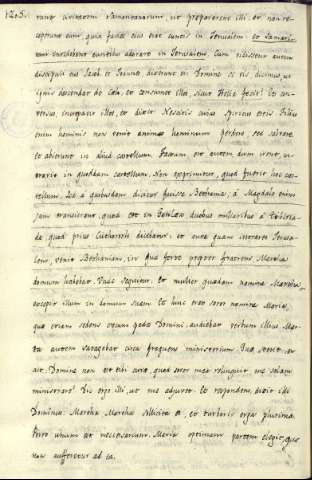 1205.
runt civitatem Samaritanorum, ut praepararent illi, et non re-
ceperunt eum quia facies eius erat euntis in Jerusalem
euntibus adorare in Jerusalem. Cum vidissent autem
discipuli eius Jacob. et Joannes, dixerunt ei Domine si vis dicimus, ut
ignis descendat de Celo, et consumat illos, sicut Helie fecit? Et con-
versus, increpavit illos, et dixit Nescitis cuius Spiritus estis Filius
enim hominis non venit animas hominum perdere, sed salvare.
et abierunt in aliud castellum. Factum est autem, dum irent, in-
travit in quoddam castellum. Non exprimitur, quod fuerit hoc cas-
tellum. Sed a quibusdam dicitur fuisse Bethania, à Magdalo enim
jam transierat, quod est in Galilea duobus milliaribus à Tiberia-
de que prius Cinereth dicebatur. et ante quam intraret Jerusa-
lem, venit Bethaniam, in qua forte propter fratrem Martha
domum habebat. Unde sequitur. Et mulier quedam nomine Martha,
excepit illum in domum suam. Et huic erat soror nomine Maria,
que etiam sedens secus pedes Domini, audiebat verbum illius. Mar-
ta autem satagebat circa frequens ministerium. Que stetit et
ait. Domine non est tibi cura, quod soror mea reliquit me solam
ministrare? Dic ergo illi, ut me adjuvet. Et respondens, dixit illi
Dominus. Martha Martha sollicita es, et turbaris erga plurima.
Porro unum est necessarium. Maria optimam partem elegit, que
non auferetur ab ea.